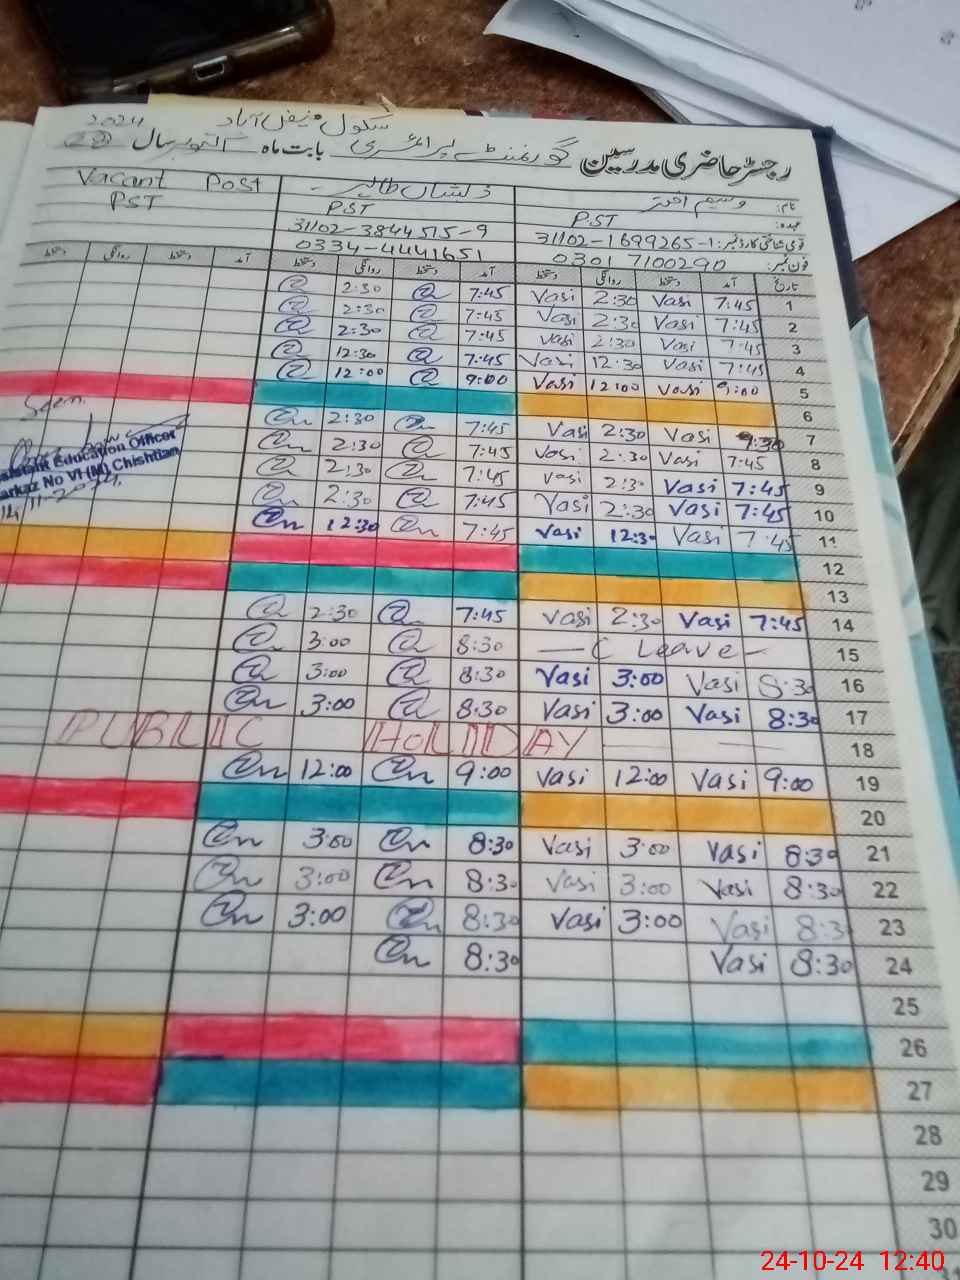 سکول فیض آباد 2024
رجسٹر حاضری مدرسین گورنمنٹ پرائمری بابت ماہ اکتوبر سال
نام: وسیم اختر ذلشاں طالب Vacant Post
عہدہ: PST PST PST
قومی شناختی کارڈ نمبر: 31102-1699265-1 31102-3844515-9
فون نمبر: 0301 7100290 0334-4441651
تاریخ آمد دستخط روانگی دستخط آمد دستخط روانگی دستخط آمد دستخط روانگی دستخط
1 7:45 Vasi 2:30 Vasi 7:45 2:30
2 7:45 Vasi 2:30 Vasi 7:45 2:30
3 7:45 Vasi 2:30 Vasi 7:45 2:30
4 7:45 Vasi 12:30 Vasi 7:45 12:30
5 9:00 Vasi 12:00 Vasi 9:00 12:00
6
7 Vasi 2:30 Vasi 7:45 2:30 Seen
8 7:45 Vasi 2:30 Vasi 7:45 2:30
9 7:45 Vasi 2:30 Vasi 7:45 2:30
10 7:45 Vasi 2:30 Vasi 7:45 2:30
11 7:45 Vasi 12:30 Vasi 7:45 12:30
Education Officer
Markaz No VI (M) Chishtian
12
13
14 7:45 Vasi 2:30 Vasi 7:45 2:30
15 — C Leave — 8:30 3:00
16 8:30 Vasi 3:00 Vasi 8:30 3:00
17 8:30 Vasi 3:00 Vasi 8:30 3:00
18 PUBLIC HOLIDAY
19 9:00 Vasi 12:00 Vasi 9:00 12:00
20
21 8:30 Vasi 3:00 Vasi 8:30 3:00
22 8:30 Vasi 3:00 Vasi 8:30 3:00
23 8:30 Vasi 3:00 Vasi 8:30 3:00
24 8:30 Vasi 8:30
25
26
27
28
29
30
24-10-24 12:40